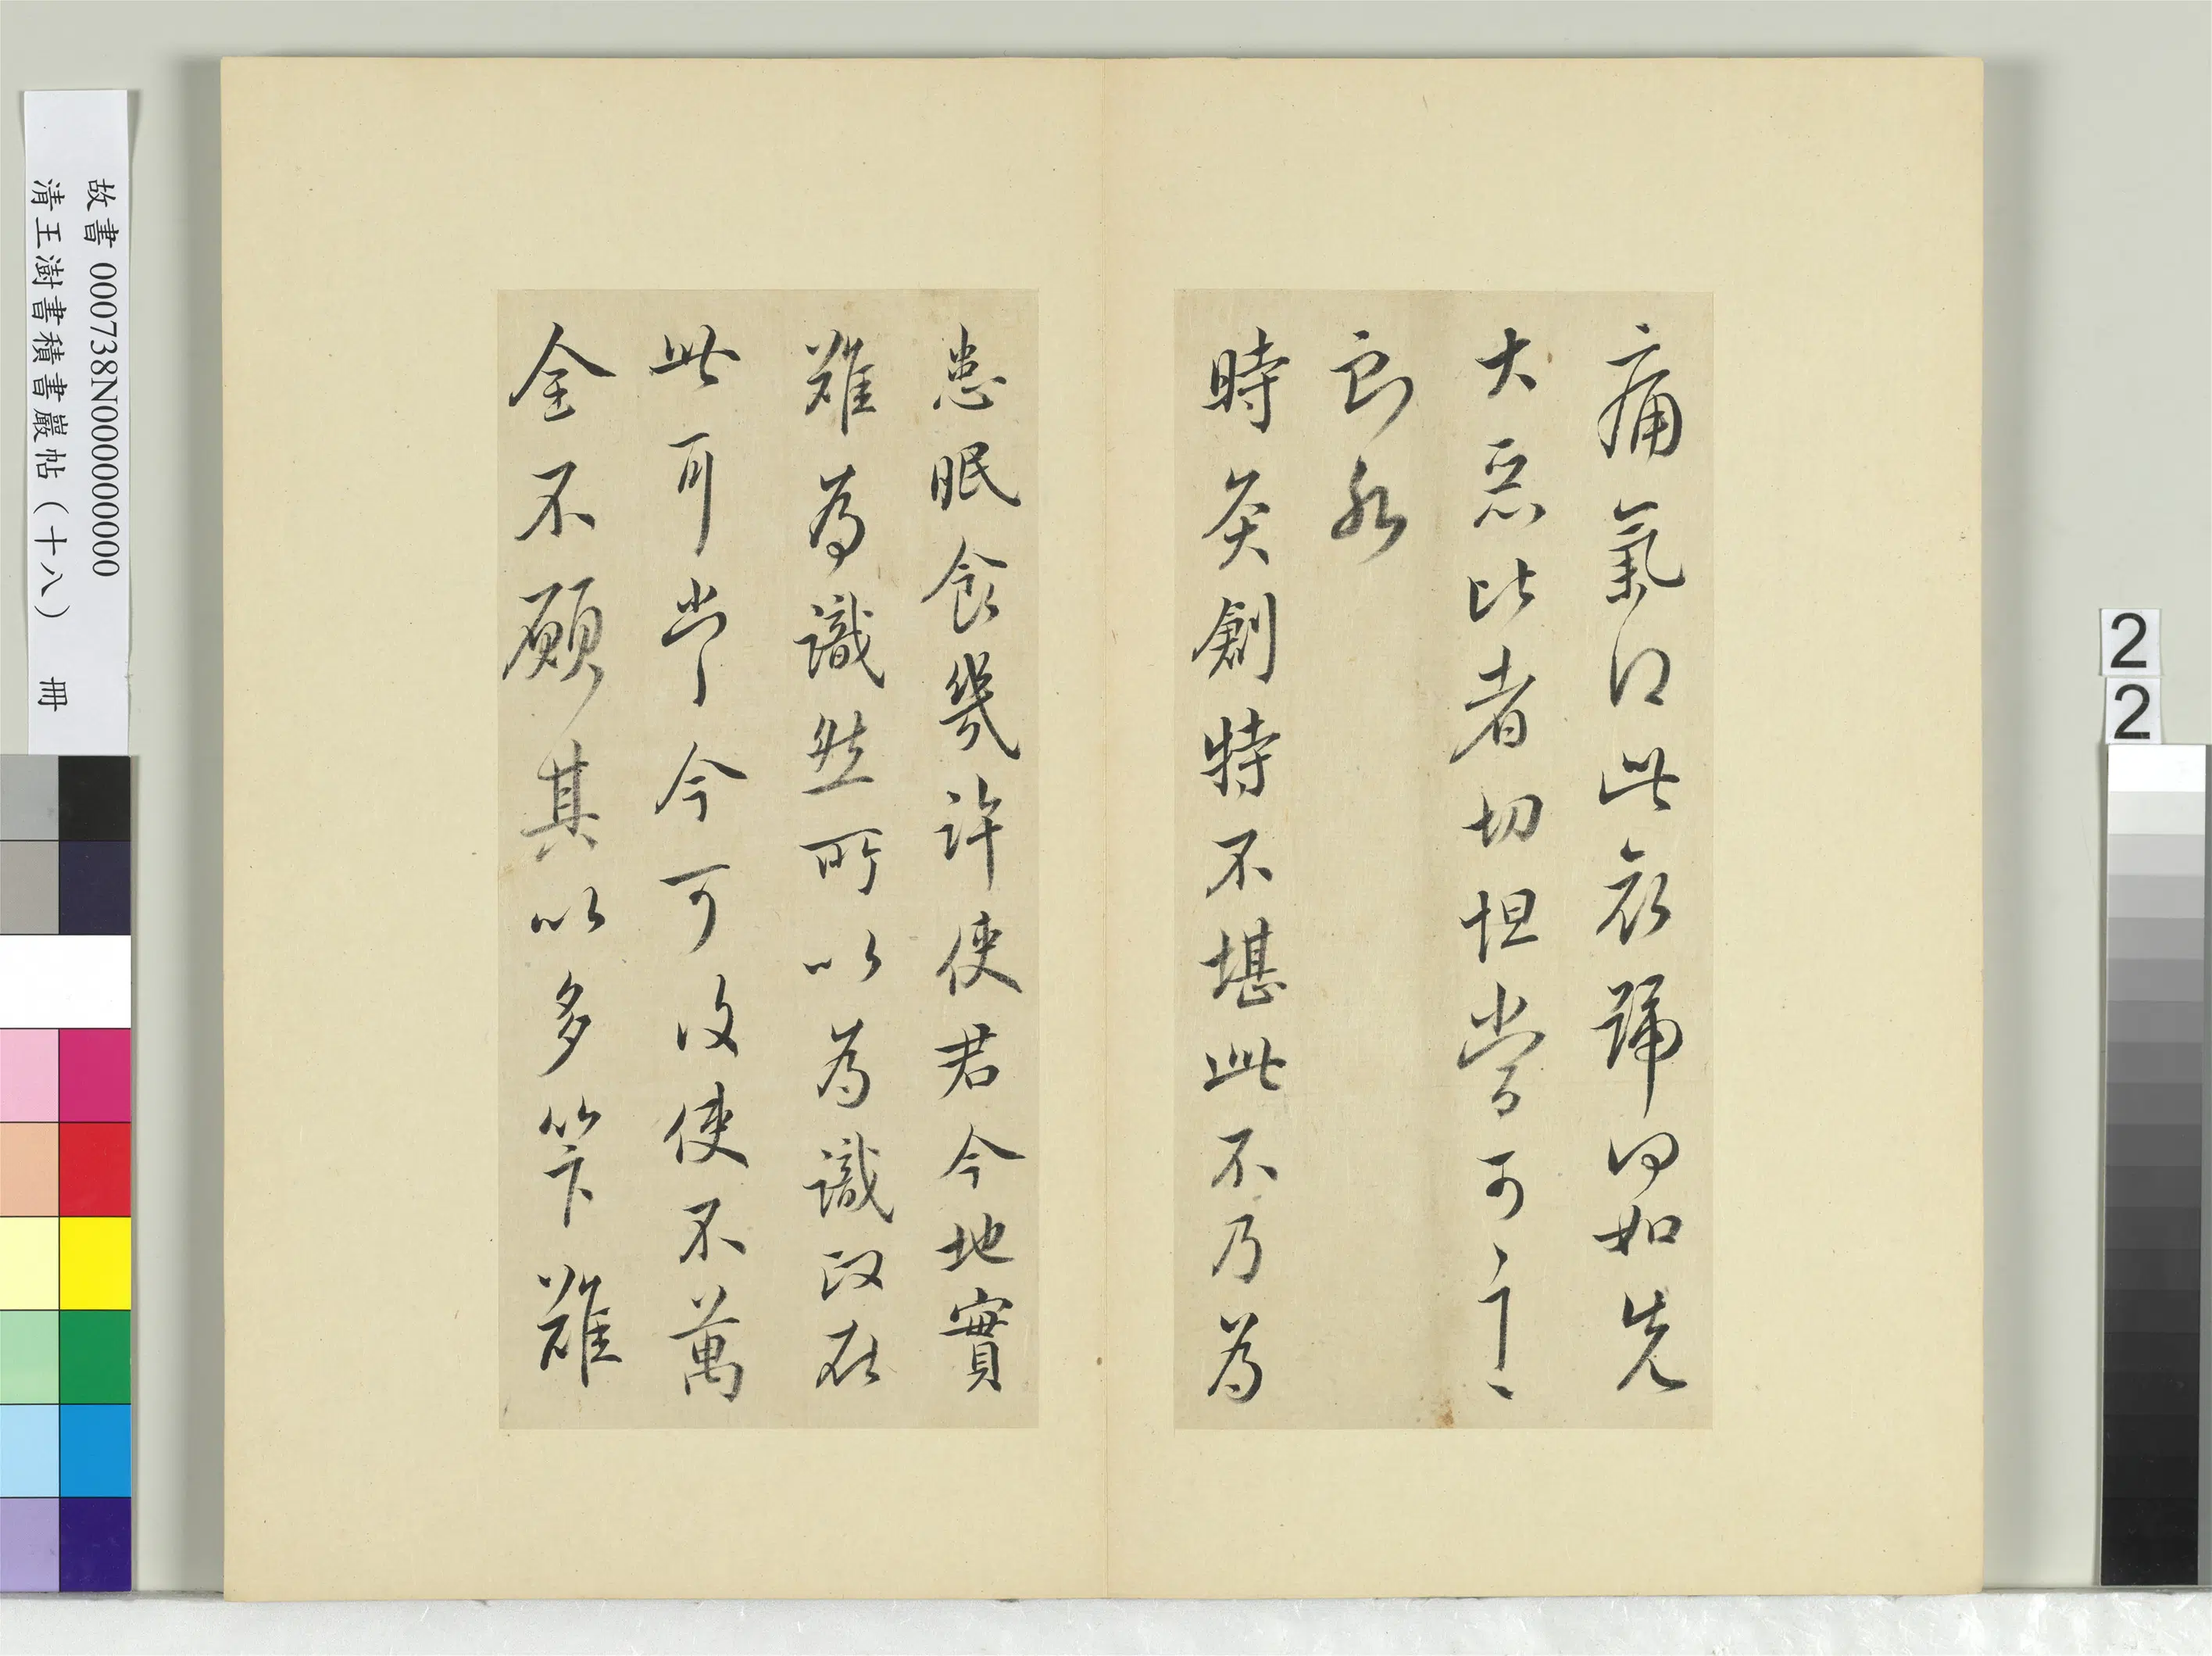 痛氣口此哀號口如先
大惡比者切怛當可言
時灸創特不堪此不乃為
患眠食幾許使君今地實
難為識然所以為識政在
此耳當今可使不萬
全不願其以多難
故書 000738N000000000
清王澍書積書巖帖(十八) 冊
2
2